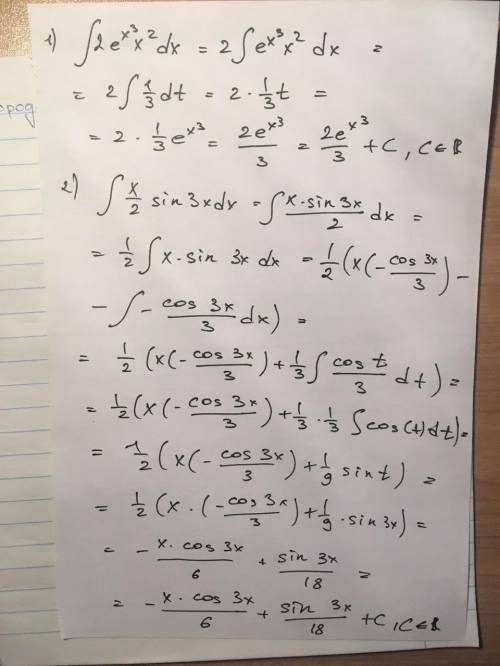 ород
1) ∫2e^{x^3}x^2dx = 2∫e^{x^3}x^2 dx =
= 2∫1/3 dt = 2 · 1/3 t =
= 2 · 1/3 e^{x^3} = 2e^{x^3}/3 = 2e^{x^3}/3 + C, C∈ℝ
2) ∫ x/2 sin 3x dx = ∫ x·sin 3x/2 dx =
= 1/2 ∫ x · sin 3x dx = 1/2 (x(-cos 3x/3) -
- ∫ - cos 3x/3 dx) =
= 1/2 (x(-cos 3x/3) + 1/3 ∫ cos t/3 dt) =
= 1/2 (x(-cos 3x/3) + 1/3 · 1/3 ∫ cos(t)dt) =
= 1/2 (x(-cos 3x/3) + 1/9 sin t) =
= 1/2 (x · (-cos 3x/3) + 1/9 · sin 3x) =
= - x · cos 3x/6 + sin 3x/18 =
= - x · cos 3x/6 + sin 3x/18 + C, C∈ℝ